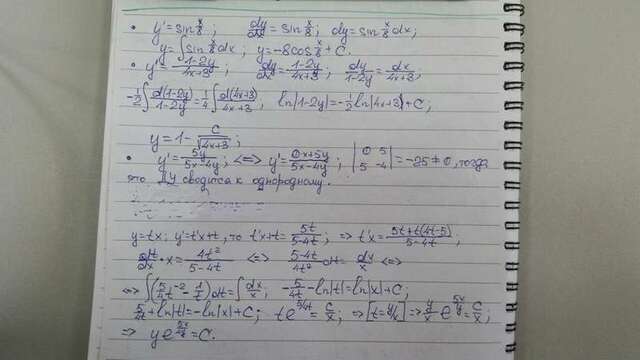 • y' = sin x/8; dy/dx = sin x/8; dy = sin x/8 dx;
y = ∫ sin x/8 dx; y = -8cos x/8 + C.
• y' = (1-2y)/(4x+3); dy/dx = (1-2y)/(4x+3); dy/(1-2y) = dx/(4x+3);
-1/2 ∫ d(1-2y)/(1-2y) = 1/4 ∫ d(4x+3)/(4x+3); ln|1-2y| = -1/2 ln|4x+3| + C;
y = 1 - C/√(4x+3);
• y' = 5y/(5x-4y); <=> y' = (0x+5y)/(5x-4y); |0 5; 5 -4| = -25 ≠ 0, тогда
это ДУ сводится к однородному.
y = tx; y' = t'x+t, то t'x+t = 5t/(5-4t); => t'x = (5t+t(4t-5))/(5-4t);
dt/dx · x = 4t²/(5-4t) <=> (5-4t)/4t² dt = dx/x <=>
<=> ∫(5/4 t⁻² - 1/t)dt = ∫ dx/x; -5/4t - ln|t| = ln|x| + C;
5/4t + ln|t| = -ln|x| + C; t e^(5/4t) = C/x; => [t = y/x] => y/x e^(5x/4y) = C/x;
=> y e^(5x/4y) = C.